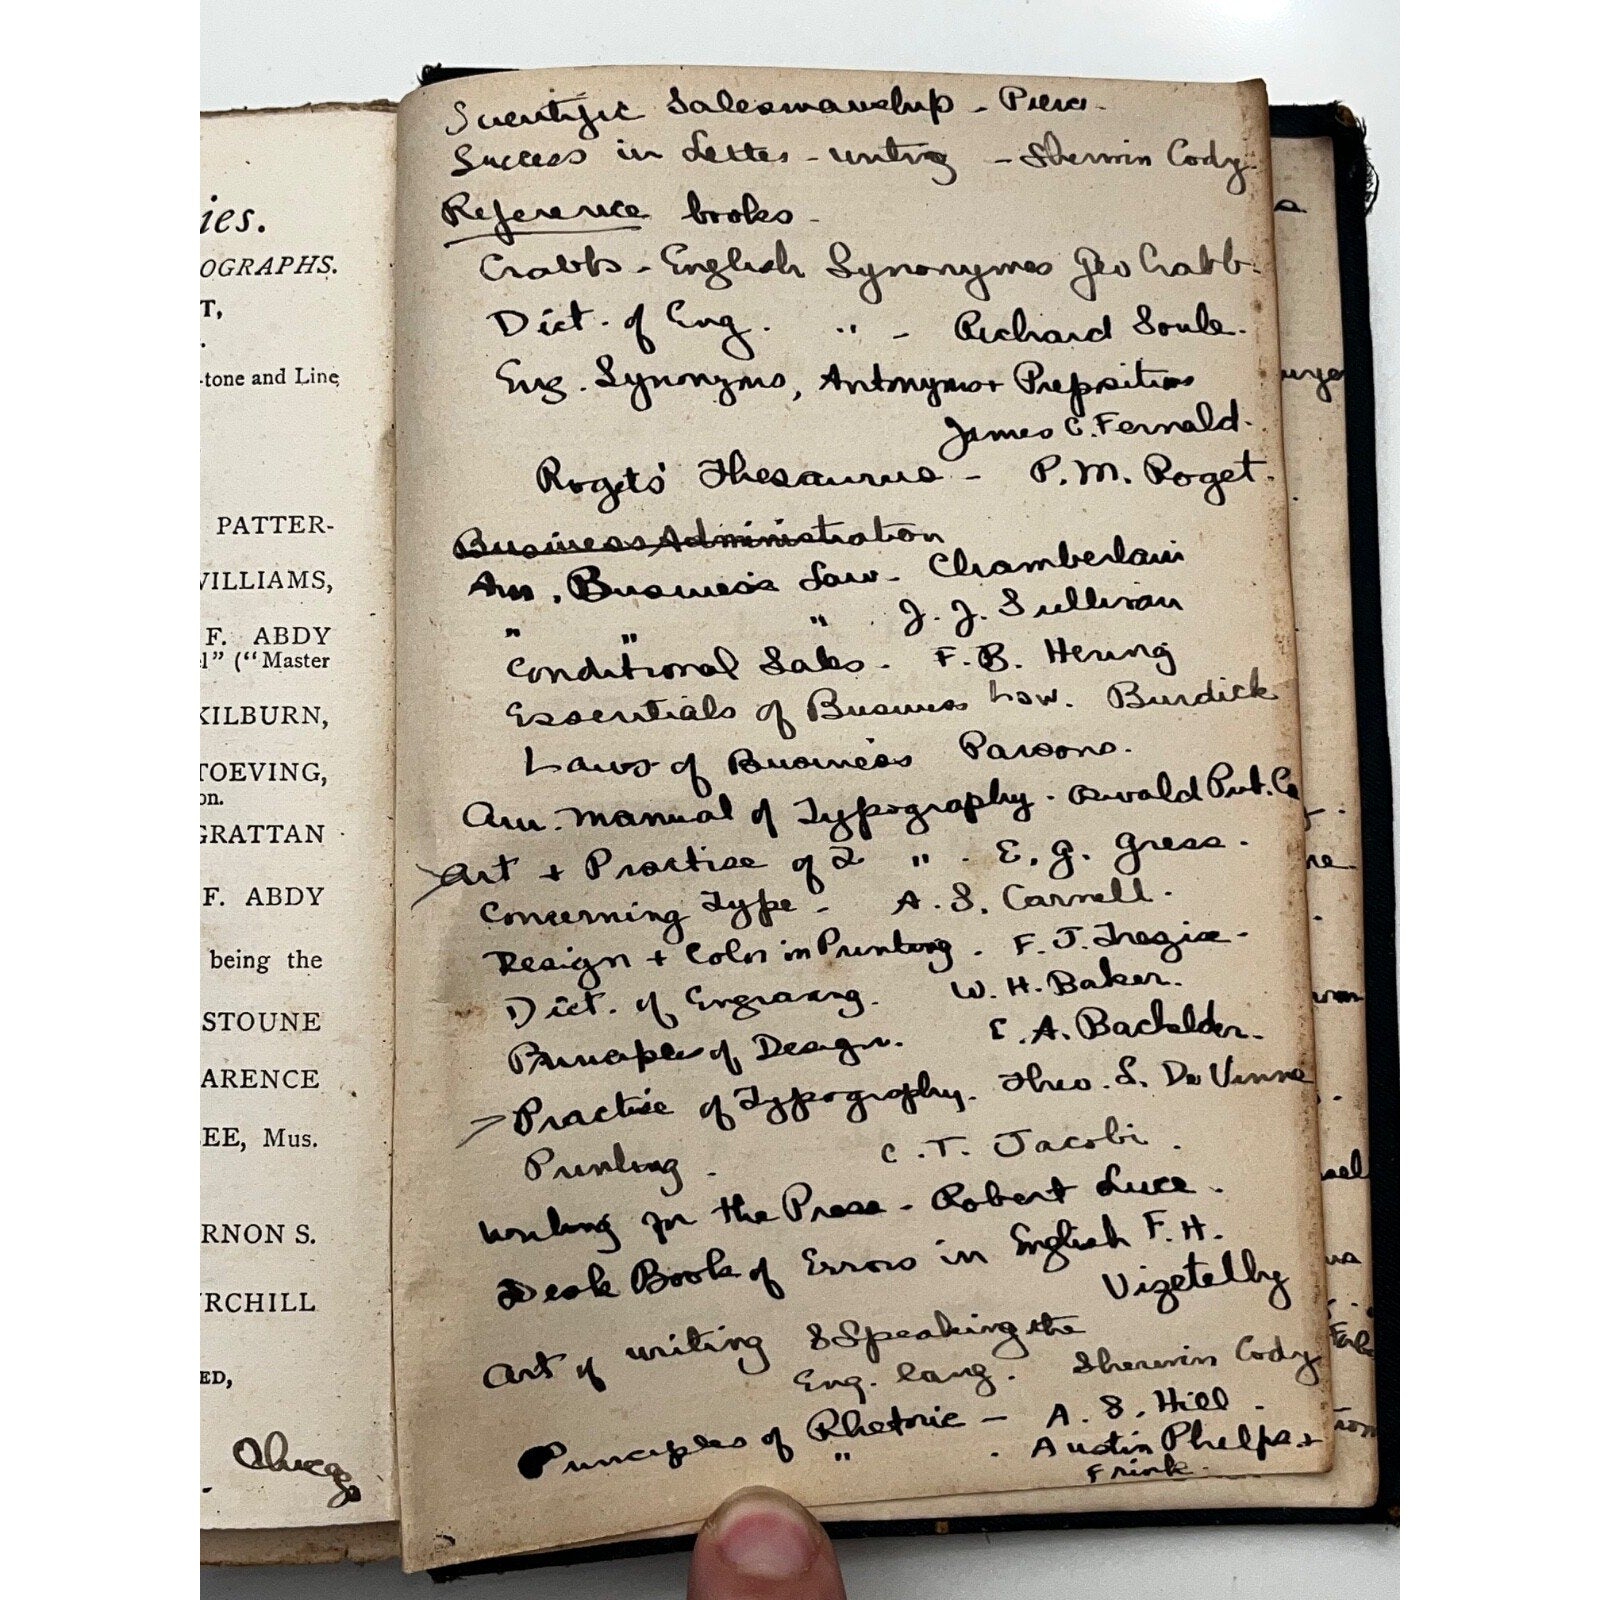 ies.
OGRAPHS.
T,
-tone and Line
PATTER-
WILLIAMS,
F. ABDY
l" ("Master
KILBURN,
TOEVING,
on.
GRATTAN
F. ABDY
being the
STOUNE
ARENCE
LEE, Mus.
RNON S.
RCHILL
ED,
Chicago
Scientific Salesmanship - Pierce.
Success in Letter-writing - Sherwin Cody.
Reference books -
Crabb's - English Synonymes Geo Crabb.
Dict. of Eng. " - Richard Soule.
Eng. Synonyms, Antonyms + Prepositions
James C. Fernald.
Rogets' Thesaurus - P. M. Roget.
Business Administration
Am. Business Law - Chamberlain
" " " J. J. Sullivan
Conditional Sales - F. B. Hering
Essentials of Business Law. Burdick
Laws of Business Parsons.
Am. Manual of Typography. Oswald Pub. Co
Art + Practise of T " . E. G. Gress.
Concerning Type - A. S. Carnell.
Design + Color in Printing. F. J. Trezise.
Dict. of Engraving. W. H. Baker.
Principles of Design. E. A. Bachelder.
Practise of Typography. Theo. L. De Vinne
Printing. C. T. Jacobi.
Writing for the Press - Robert Luce.
Desk Book of Errors in English F. H.
Vizetelly
Art of writing & Speaking the
Eng. lang. Sherwin Cody
Principles of Rhetoric - A. S. Hill.
" . Austin Phelps +
Frink.